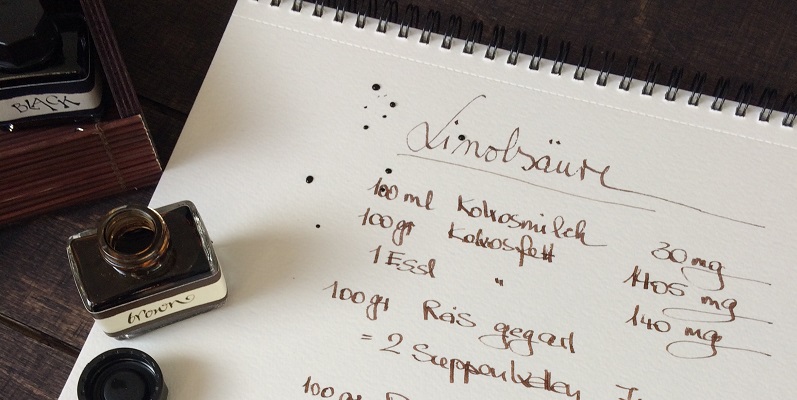 BLACK
brown
Linolsäure
100 ml Kokosmilch 30 mg
100gr Kokosfett 1405 mg
1 Essl " 140 mg
100gr Reis gegart
= 2 Suppenkellen
100 gr